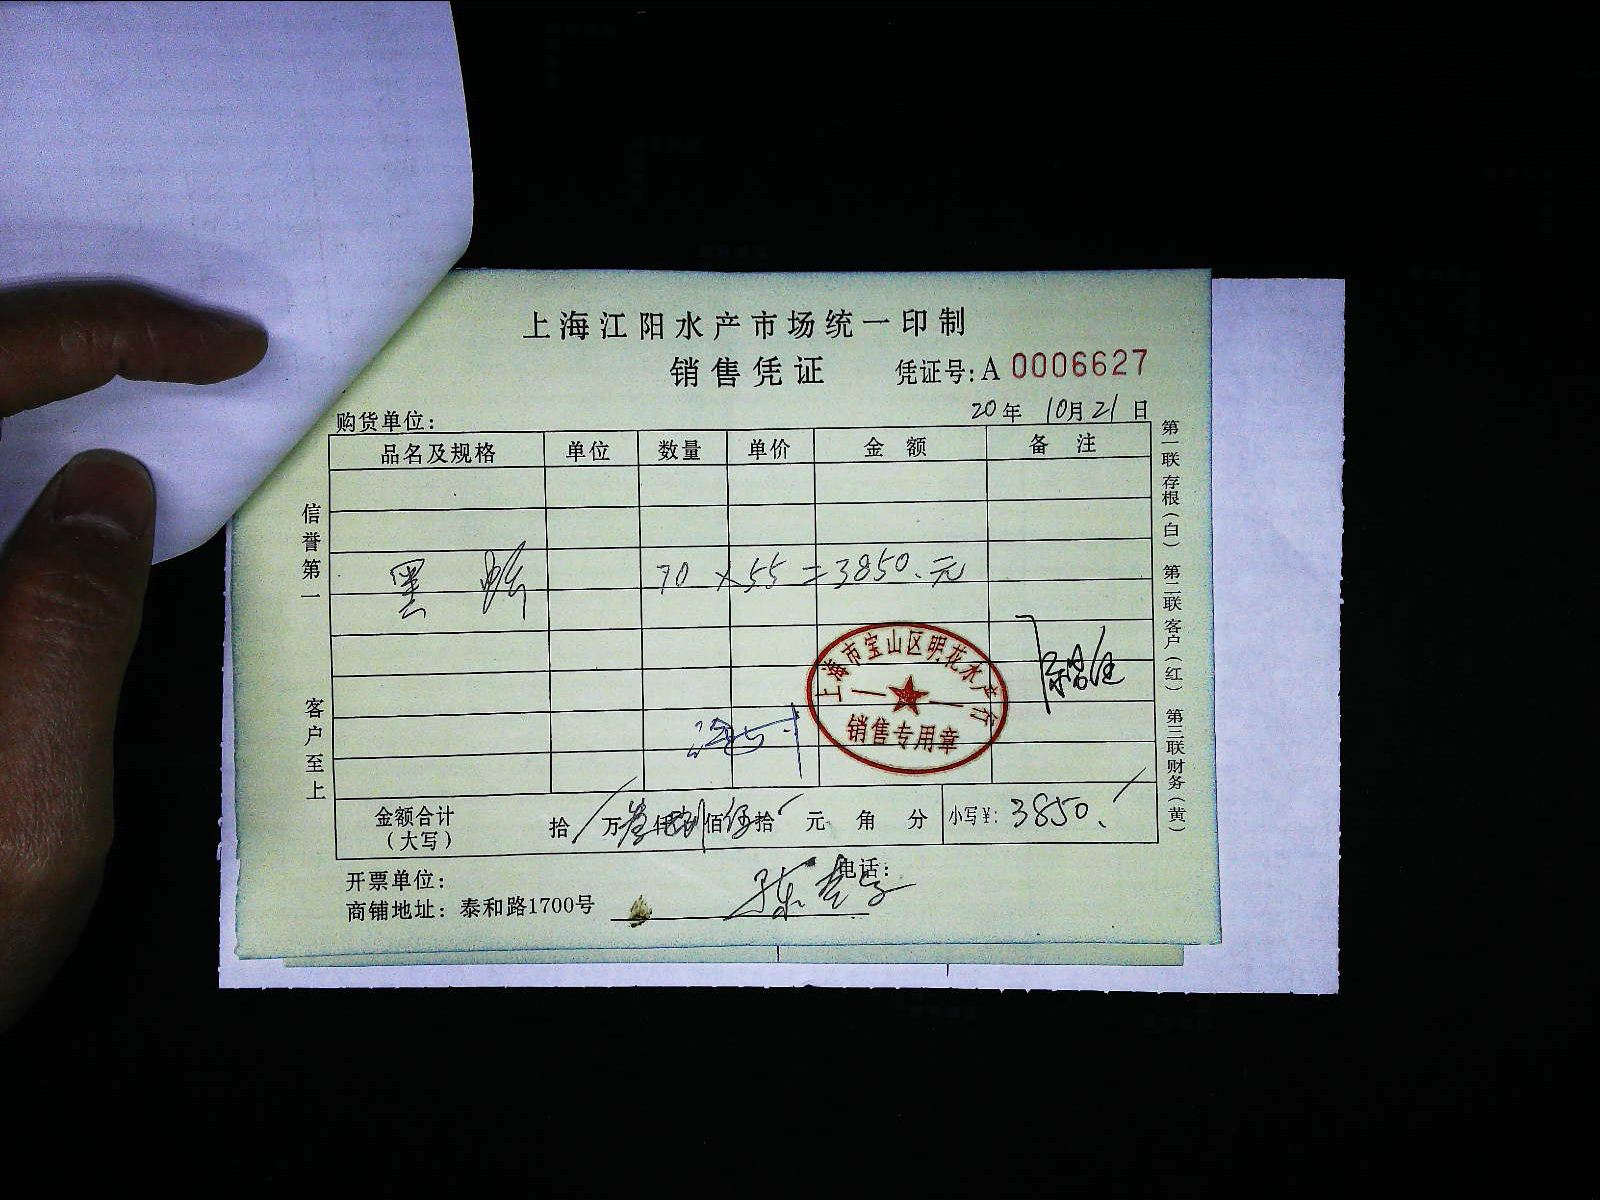 上海江阳水产市场统一印制
销售凭证 凭证号:A 0006627
20年 10月21日
购货单位:
品名及规格 单位 数量 单价 金 额 备 注
黑 70 × 55 = 3850.元
上海市宝山区明花水产行
销售专用章
金额合计(大写) 拾/万叁仟捌佰伍拾 元 角 分 小写¥: 3850.
开票单位: 电话:
商铺地址: 泰和路1700号
信誉第一
客户至上
第一联 存根(白) 第二联 客户(红) 第三联 财务(黄)